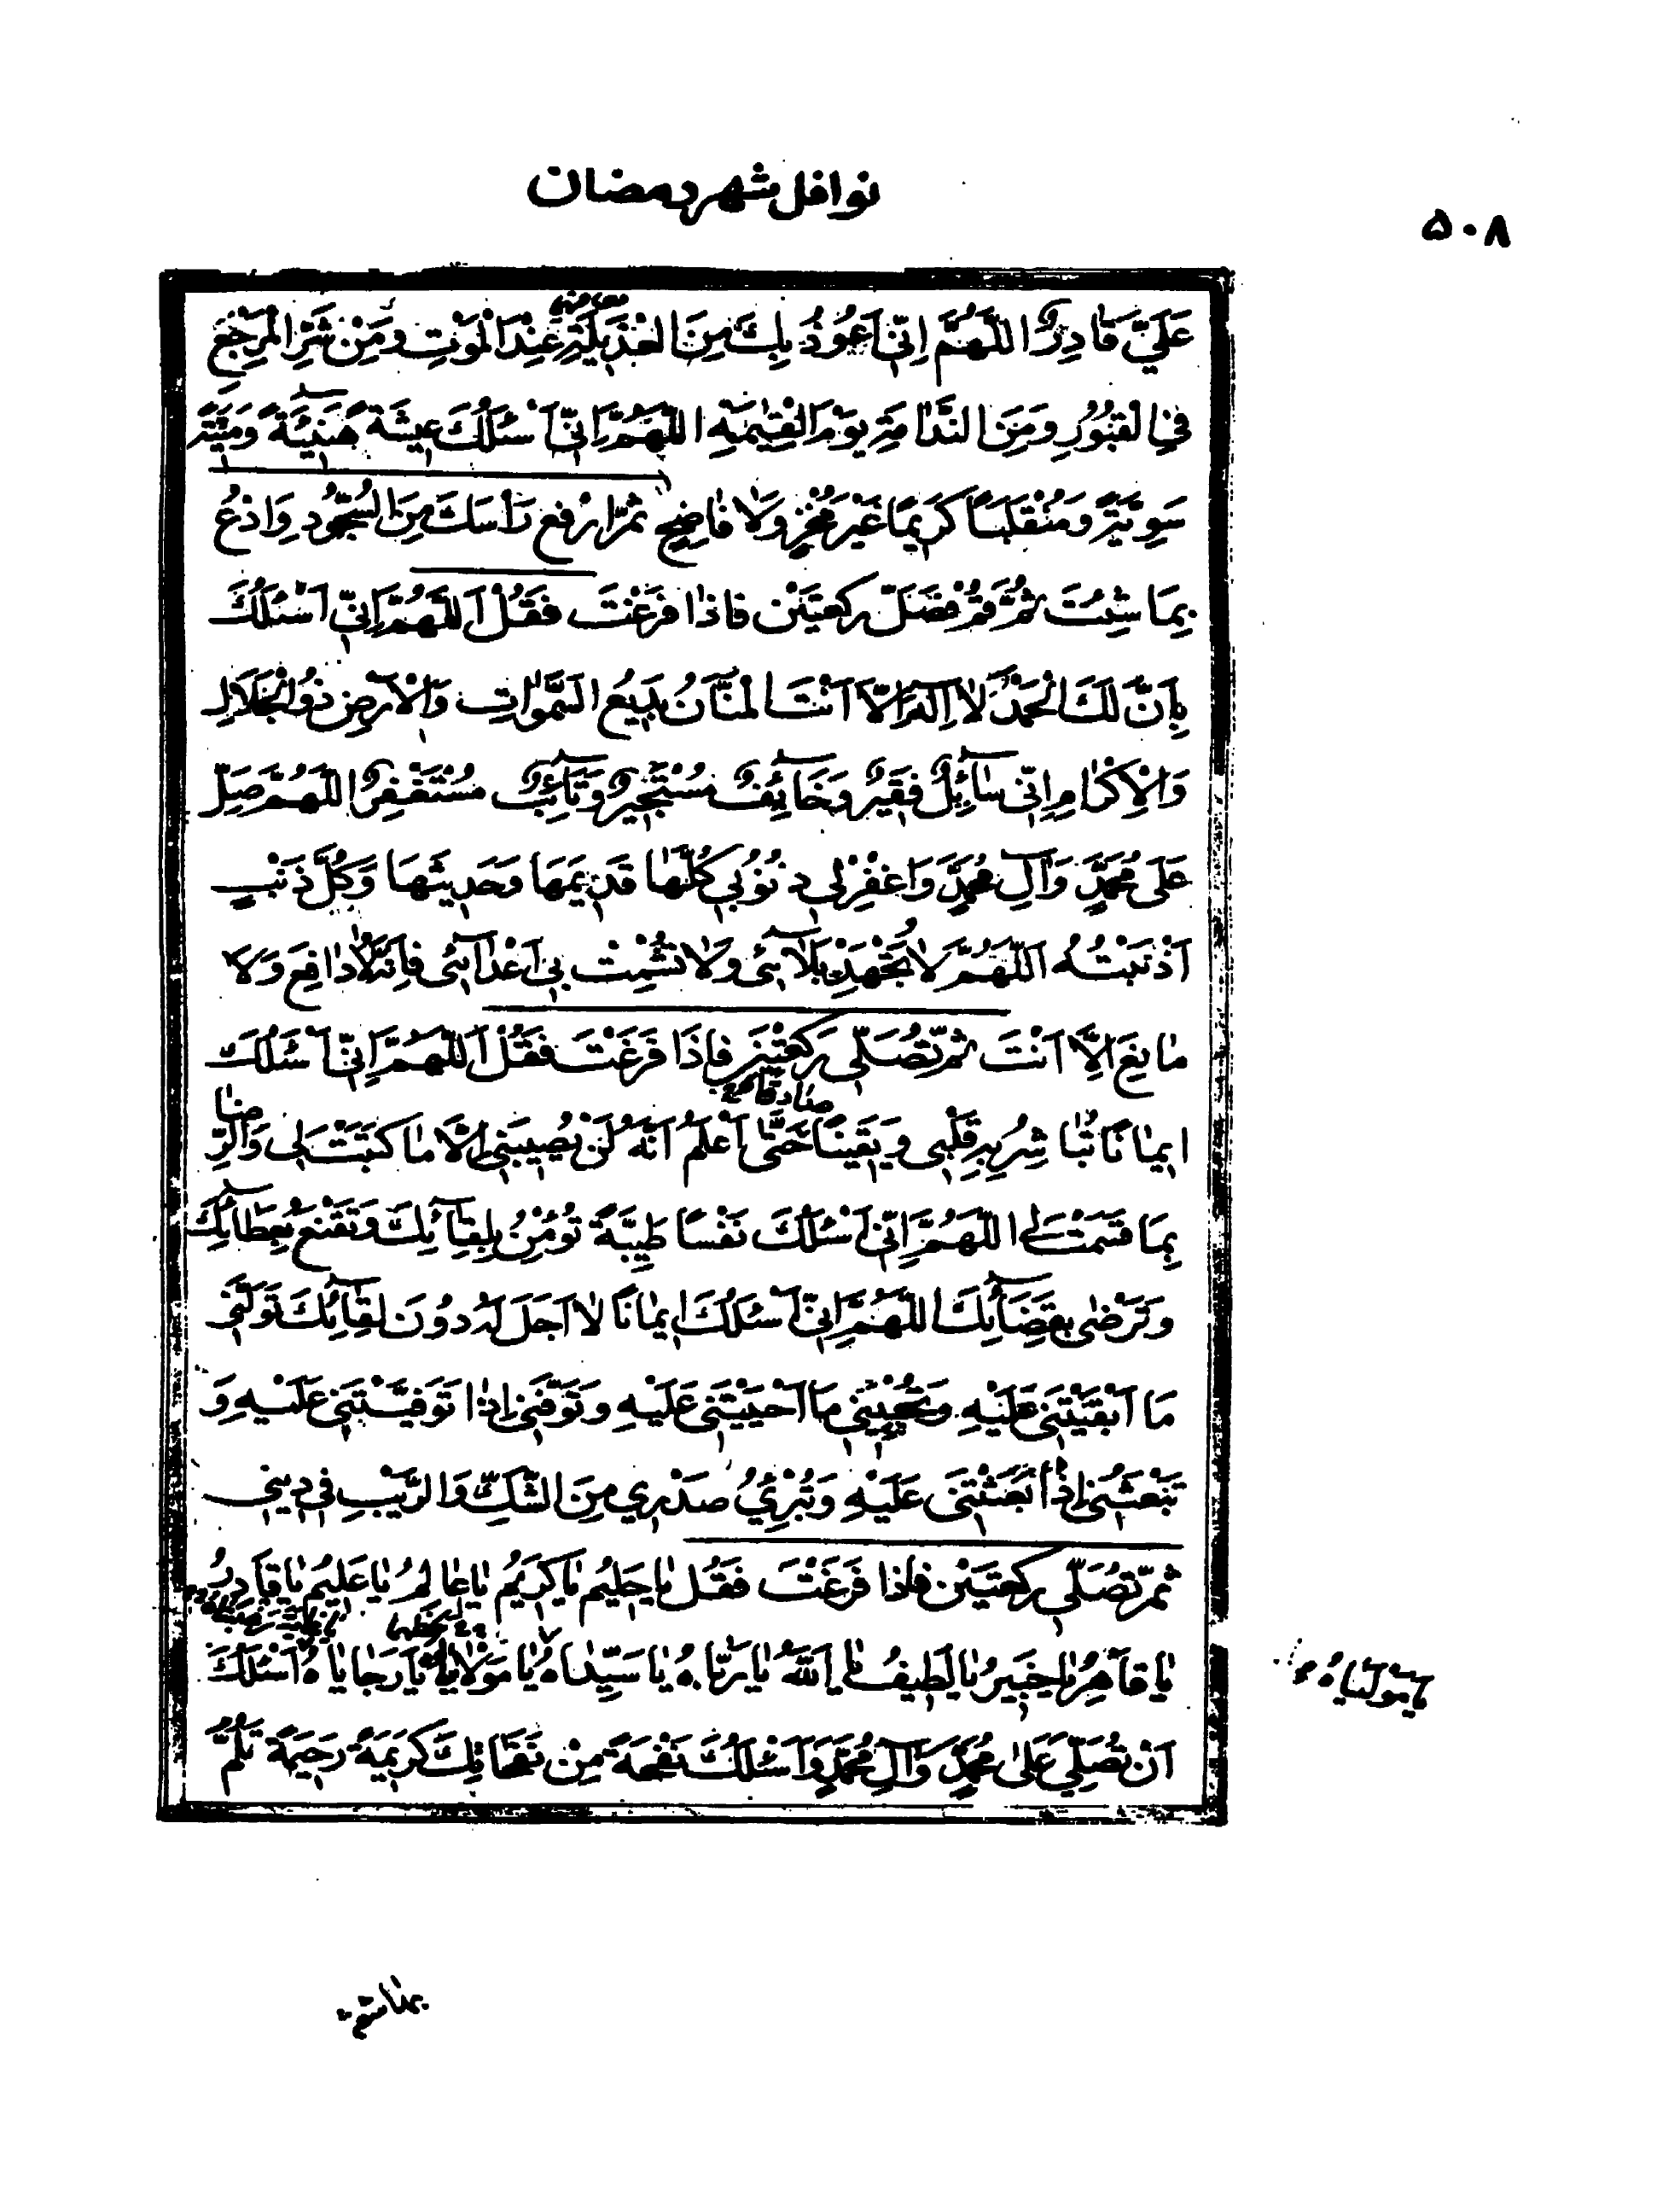 نوافل شهر رمضان
۵۰۸
عَلَيَّ قَادِرٌ اللّٰهُمَّ اِنّي اَعُوذُ بِكَ مِنَ الْعَذيلَةِ عِنْدَ الْمَوْتِ وَمِنْ شَرِّ الْمَرْجِعِ
فِي الْقُبُورِ وَمِنَ النَّدَامَةِ يَوْمَ الْقِيٰمَةِ اللّٰهُمَّ اِنّي اَسْئَلُكَ عيشَةً هَنيئَةً وَميتَةً
سَوِيَّةً وَمُنْقَلَبًا كَريمًا غَيْرَ مُخْزٍ وَلَا فَاضِحٍ ثمّ ارفع رَأسَكَ مِنَ السُّجُودِ وَادْعُ
بِمَا شِئْتَ ثُمَّ قُمْ فَصَلِّ ركعتَيْن فَاذا فَرَغْتَ فَقُلْ اَللّٰهُمَّ اِنّي اَسْئَلُكَ
بِاَنَّ لَكَ الْحَمْدُ لَا اِلٰهَ اِلَّا اَنْتَ الْمَنَّانُ بَديعُ السَّمٰوَاتِ وَالْاَرْضِ ذُو الْجَلَالِ
وَالْاِكْرَامِ اِنّي سَائِلٌ فَقيرٌ وَخَائِفٌ مُسْتَجيرٌ وَتَائِبٌ مُسْتَغْفِرٌ اللّٰهُمَّ صَلِّ
عَلىٰ مُحَمَّدٍ وَآلِ مُحَمَّدٍ وَاغْفِرْ لي ذُنُوبي كُلَّهَا قَديمَهَا وَحَديثَهَا وَكُلَّ ذَنْبٍ
اَذْنَبْتُهُ اَللّٰهُمَّ لَا تُجْهِدْ بَلَائي وَلَا تُشْمِتْ بي اَعْدَائي فَاِنَّهُ لَا دَافِعَ وَلَا
مَانِعَ اِلَّا اَنْتَ ثمّ تُصَلّي رَكعتَيْنِ فَاِذَا فَرَغْتَ فَقُلْ اَللّٰهُمَّ اِنّي اَسْئَلُكَ
صَادِقًا
ايمَانًا تُبَاشِرُ بِهِ قَلْبي وَيَقينًا حَتّٰى اَعْلَمُ اَنَّهُ لَنْ يُصيبَني اِلَّا مَا كَتَبْتَ لي وَالرِّضَا
بِمَا قَسَمْتَ لي اللّٰهُمَّ اِنّي اَسْئَلُكَ نَفْسًا طَيِّبَةً تُؤْمِنُ بِلِقَائِكَ وَتَقْنَعُ بِعَطَائِكَ
وَتَرْضىٰ بِقَضَائِكَ اللّٰهُمَّ اِنّي اَسْئَلُكَ ايمَانًا لَا اَجَلَ لَهُ دُونَ لِقَائِكَ تَوَلَّني
مَا اَبْقَيْتَني عَلَيْهِ وَتُحْيِيني مَا اَحْيَيْتَني عَلَيْهِ وَتَوَفَّني اِذَا تَوَفَّيْتَني عَلَيْهِ وَ
تَبْعَثُني اِذَا بَعَثْتَني عَلَيْهِ وَتُبْرِئُ صَدْري مِنَ الشَّكِّ وَالرَّيْبِ في ديني
ثمّ تُصَلّي ركعتَيْن فَاذا فَرَغْتَ فَقُل يَا حَليمُ يَا كَريمُ يَا عَالِمُ يَا عَليمُ يَا قَادِرُ
يَا قَاهِرُ يَا خَبيرُ يَا لَطيفُ يَا اَللّٰهُ يَا رَبَّاهُ يَا سَيِّدَاهُ يَا مَوْلَايَاهُ يَا رَجَايَاهُ اَسْئَلُكَ
يا مولياه
اَنْ تُصَلِّيَ عَلىٰ مُحَمَّدٍ وَآلِ مُحَمَّدٍ وَاَسْئَلُكَ نَفْحَةً مِنْ نَفَحَاتِكَ كَريمَةً رَحيمَةً تَلُمُّ